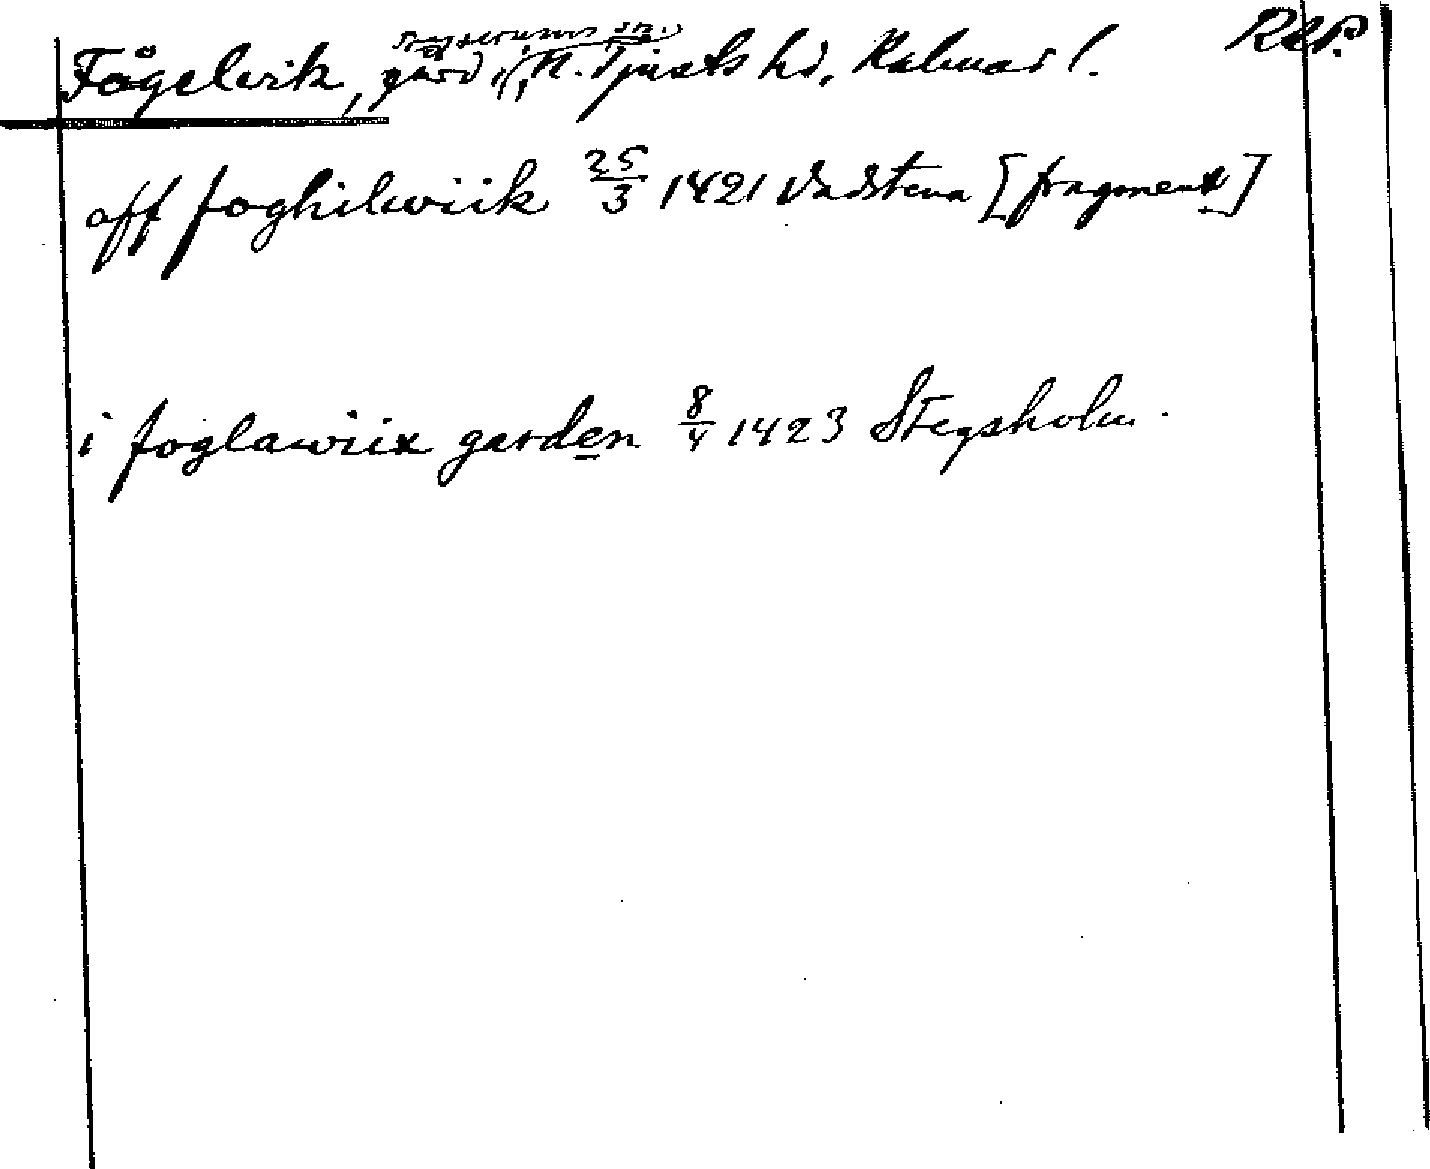 Fågelvik, gård, Tryserums sn., N. Tjusts hd, Kalmar l. Rep.
aff foghilwiik 25/3 1421 Vadstena [fragment]
i foglawiix garden 8/4 1423 Stegsholm.